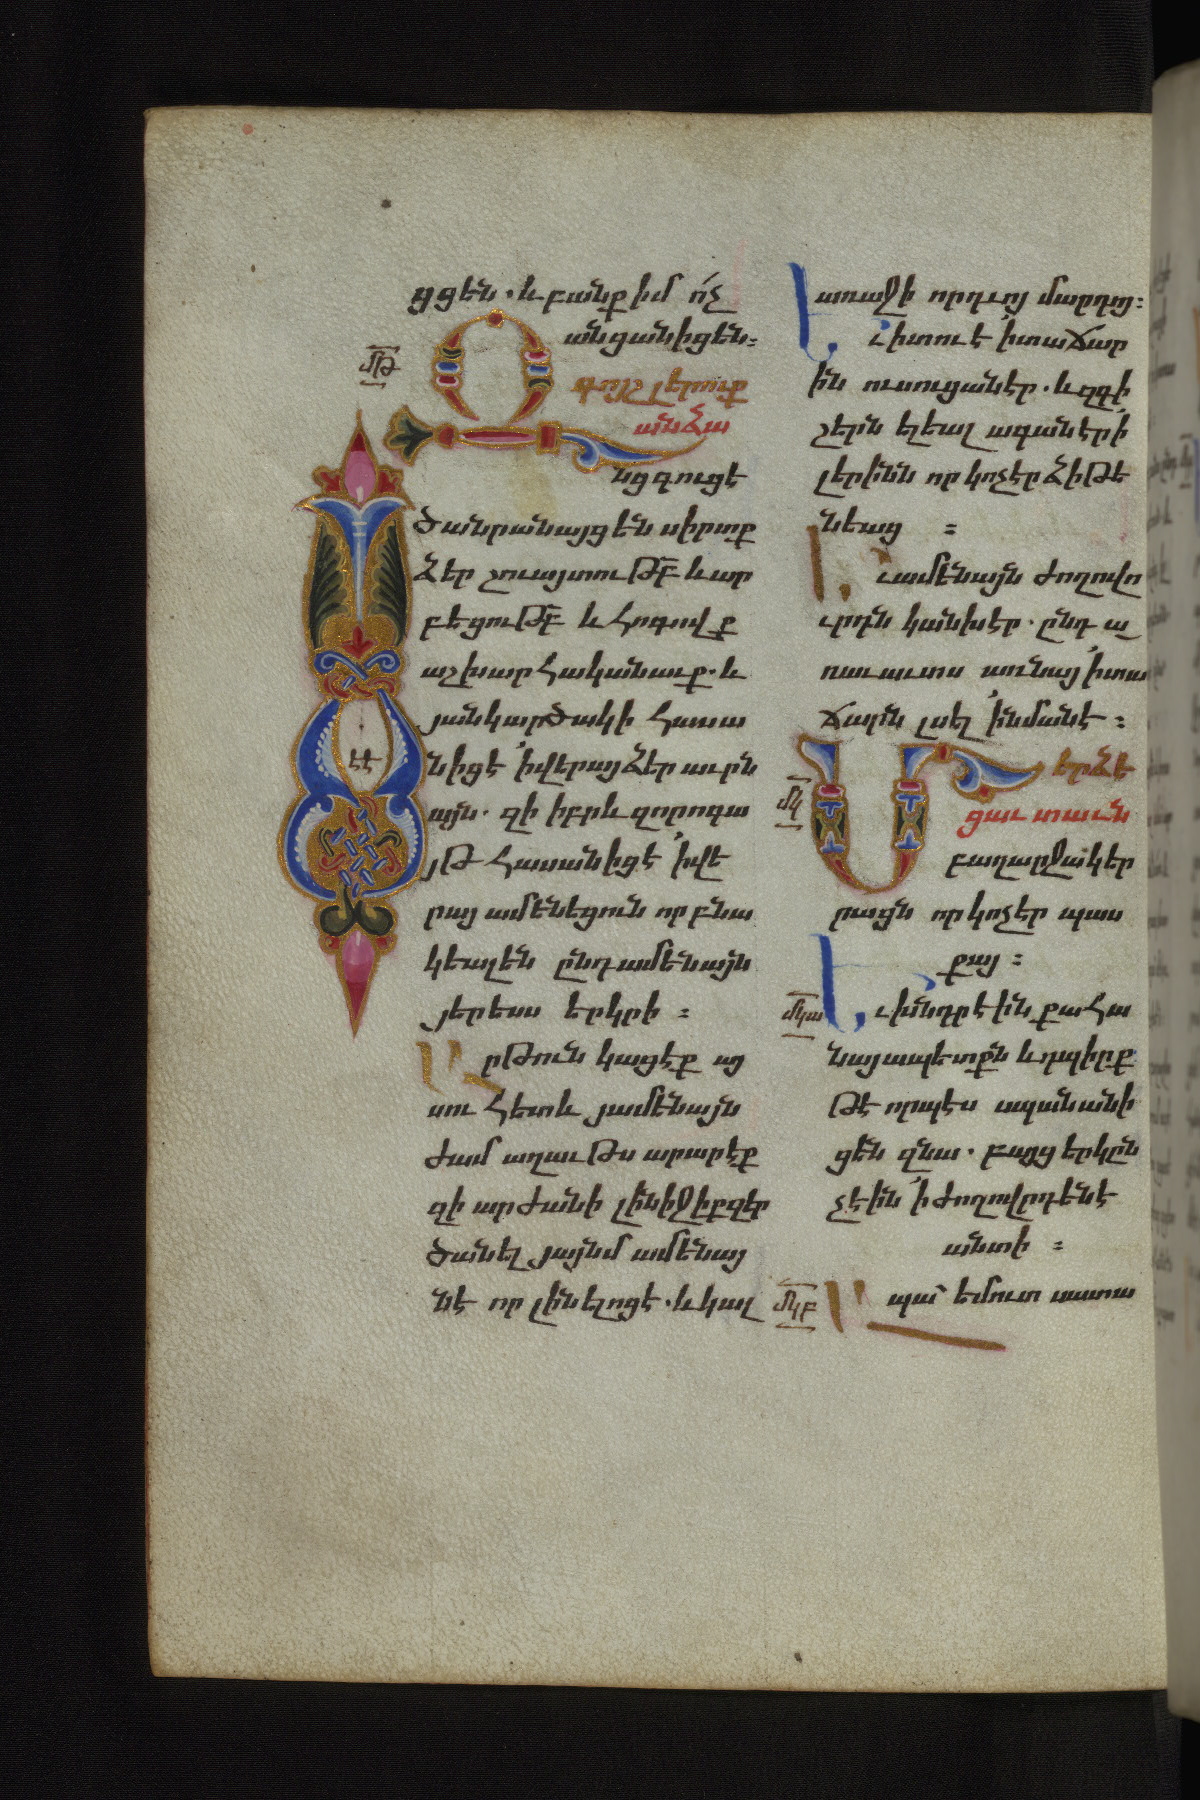 ցցեն. և բանք իմ ո՛չ
անցանիցեն։
մժթ
Զ
գոյշ լերուք
անձա
նց գուցէ
ծանրանայցեն սիրտք
ձեր շուայտուԹԲ և ար
բեցուԹԲ և հոգովք
աշխարհականաւք. և
յանկարծակի հասա
նիցէ ՛ի վերայ ձեր աւրն
այն. զի իբրև զորոգա
յթ հասանիցէ ՛ի վե
րայ ամենեցուն որ բնա
կեալ են ընդ ամենայն
յերեսս երկրի ։
Արթուն կացէք այ
սուհետև յամենայն
ժամ աղաւթս արարէք
զի արժանի լինիջիք զեր
ծանել յայնմ ամենայ
նէ որ լինելոց է. և կալ
առաջի որդւոյ մարդոյ։
Ի տուէ ՛ի տաճար
ին ուսուցանէր. և զգի
շերն ելեալ ագանէր ՛ի
լերինն որ կոչէր Ձիթե
նեաց ։
Եւ ամենայն ժողովո
ւրդն կանխէր. ընդ ա
ռաւաւտս առ նա ՛ի տա
ճարն լսել ՛ի նմանէ ։
մկ
Մ
երձե
ցաւ տաւն
բաղարջակեր
րացն որ կոչէր պաս
քայ ։
մկա
Խնդրէին քահա
նայապետքն և դպիրք
թէ որպէս սպանանի
ցեն զնա. բայց երկըն
չէին ՛ի ժողովրդենէ
անտի ։
մկբ Ապա եմուտ սատա